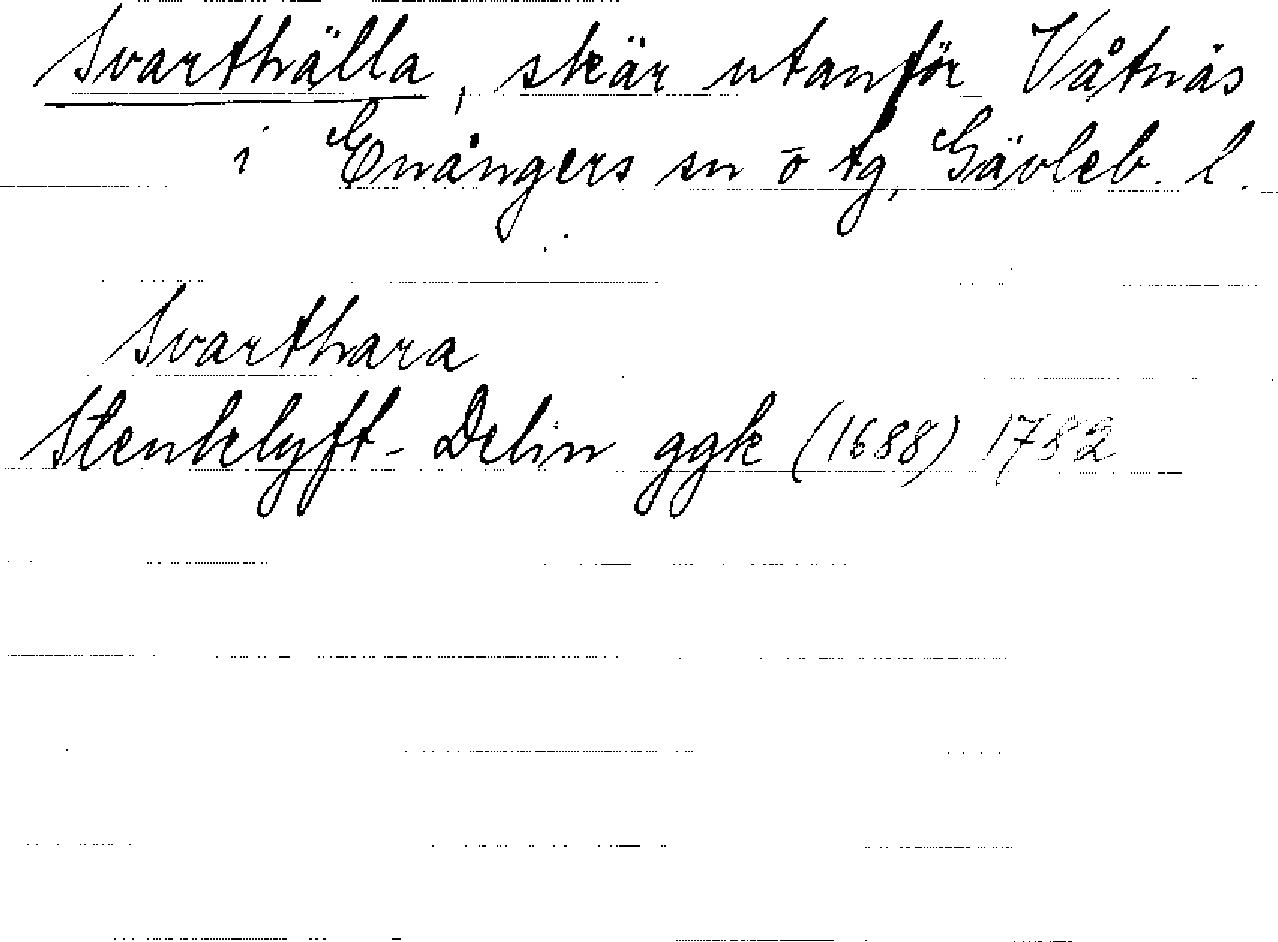 Svarthälla, skär utanför Våtnäs
i Enångers sn o tg, Gävleb. l.
Svarthara
Stenklyft-Delin ggk (1688) 1782